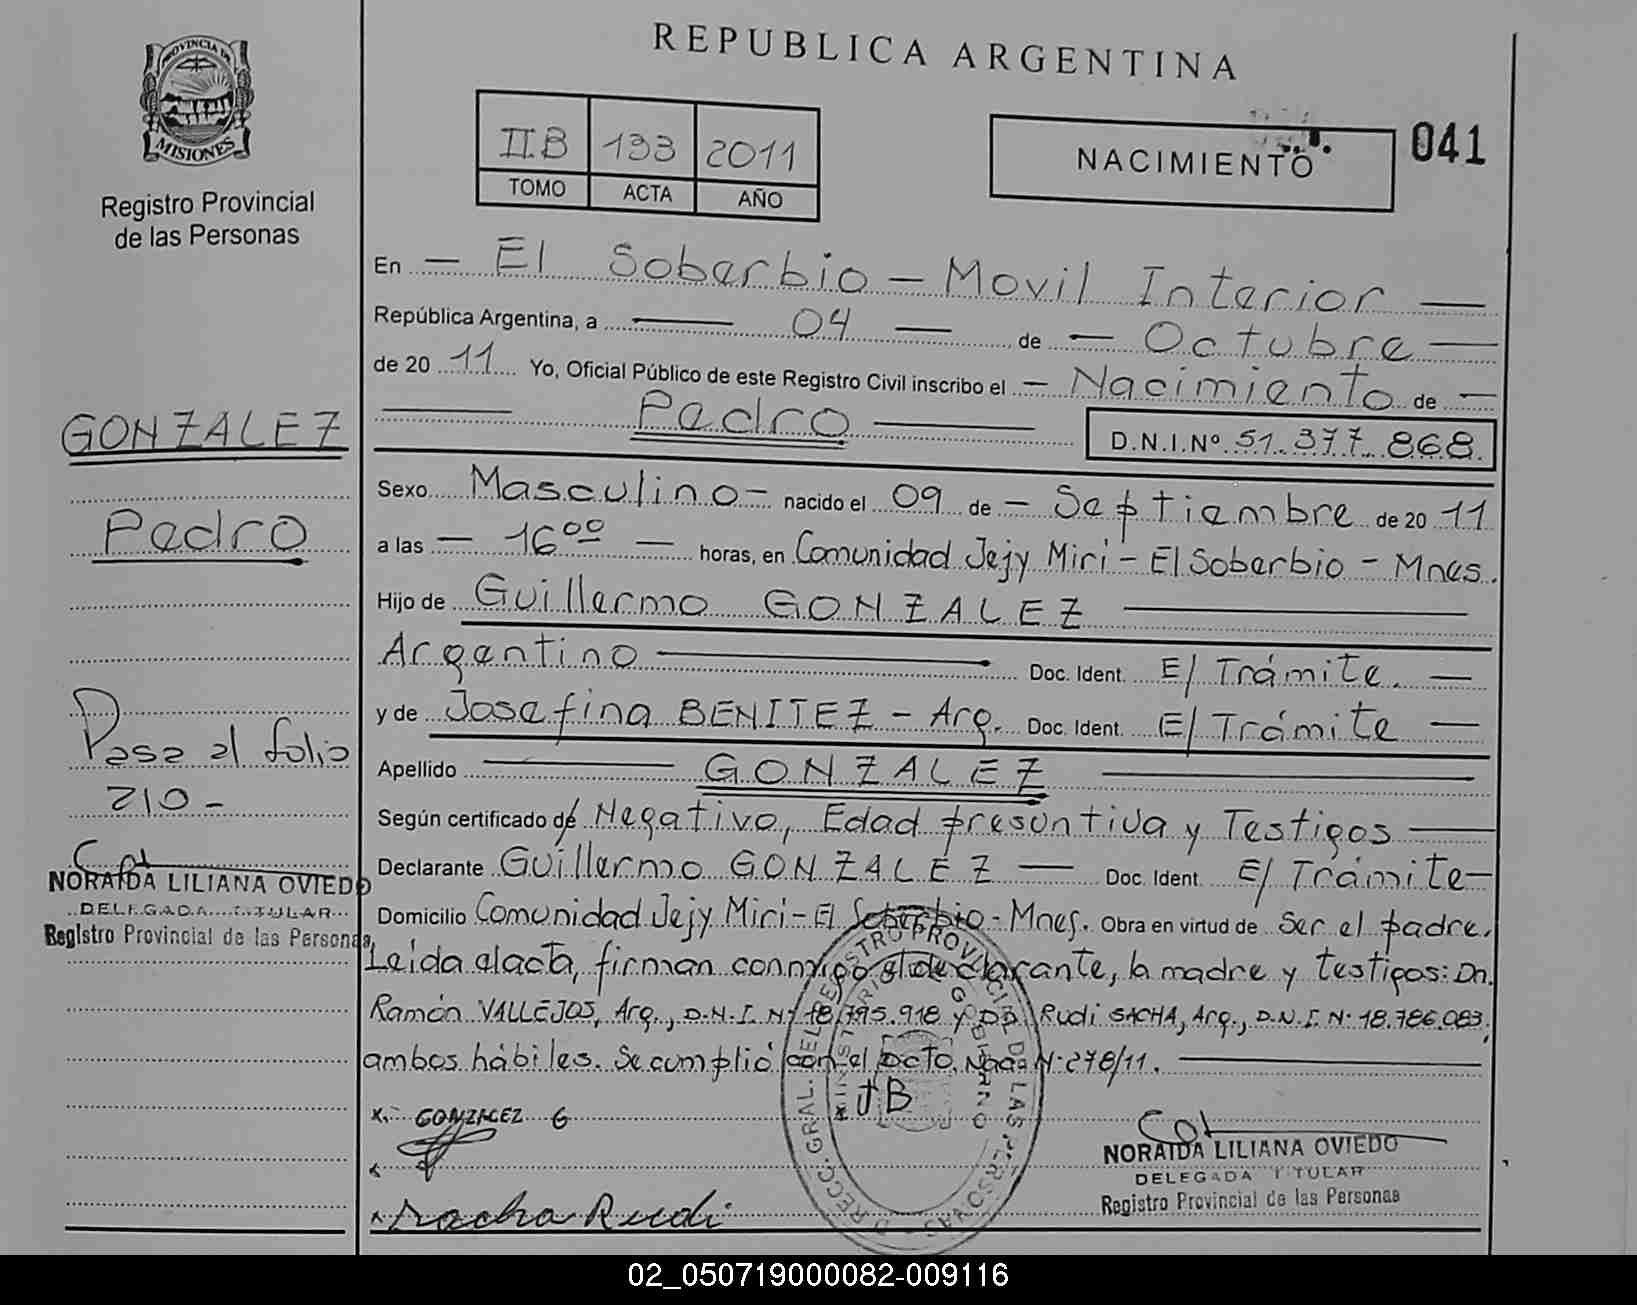 REPUBLICA ARGENTINA
PROVINCIA DE
MISIONES
Registro Provincial
de las Personas
II.B 133 2011
TOMO ACTA AÑO
NACIMIENTO
041
En — El Soberbio — Movil Interior —
República Argentina, a — 04 — de — Octubre —
de 20 11 Yo, Oficial Público de este Registro Civil inscribo el — Nacimiento de —
— Pedro — D.N.I.Nº 51.377.868.
GONZALEZ
Pedro
Sexo Masculino — nacido el 09 de — Septiembre de 20 11
a las — 16ºº — horas, en Comunidad Jejy Miri - El Soberbio - Mnes.
Hijo de Guillermo GONZALEZ —
Argentino — Doc. Ident. E/ Trámite. —
y de Josefina BENITEZ - Arg. Doc. Ident. E/ Trámite —
Apellido — GONZALEZ —
Según certificado de Negativo, Edad presuntiva y Testigos —
Declarante Guillermo GONZALEZ — Doc. Ident. E/ Trámite —
Domicilio Comunidad Jejy Miri - El Soberbio - Mnes. Obra en virtud de Ser el padre.
Leída el acta, firman conmigo el declarante, la madre y testigos: Dn.
Ramón VALLEJOS, Arg., D.N.I. Nº 18.795.918 y Dn. Rudi SACHA, Arg., D.N.I. Nº 18.786.083,
ambos hábiles. Se cumplió con el Dcto. Nac. Nº 278/11. —
Pasa al folio
210 -
NORAIDA LILIANA OVIEDO
DELEGADA TITULAR
Registro Provincial de las Personas
x. GONZALEZ G
x JB
x Sacha Rudi
DIRECC. GRAL. DEL REGISTRO PROVINCIAL DE LAS PERSONAS
MINISTERIO GOBIERNO
NORAIDA LILIANA OVIEDO
DELEGADA TITULAR
Registro Provincial de las Personas
02_050719000082-009116